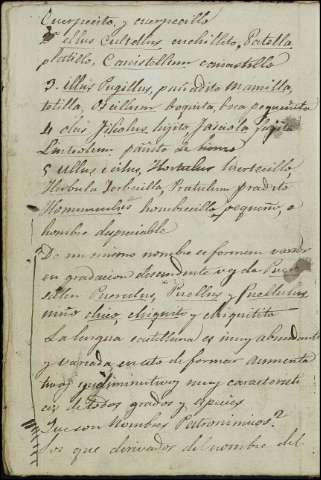 Cuerpecito, y cuerpecillo
2º ellus Cultellus cuchillito, Patella
platillo, Canistellum canastillo
3. illus Pugillus, puñadito Mamilla,
tetilla, Oscillum boquita, boca pequeñita
4 olus Filiolus, hijito, Fasciola fajita
Linteolum, pañito de lienzo
5 Ullus Hortulus huertecillo,
Herbula Yerbecilla, Pratulum pradito
hombrecillo pequeño, o
hombre despreciable
De un mismo nombre se forman varios
en gradacion descendente v.g. de Puer
salen Puerulus, Puellus y Puellulus,
niño chico, chiquito y chiquitito
La lengua castellana es muy abundante
y variada en esto de formar aumenta
tivos y diminutivos muy caracteristi
cos de todos grados y especies
Que son Nombres Patronimicos?
Los que derivados del nombre del